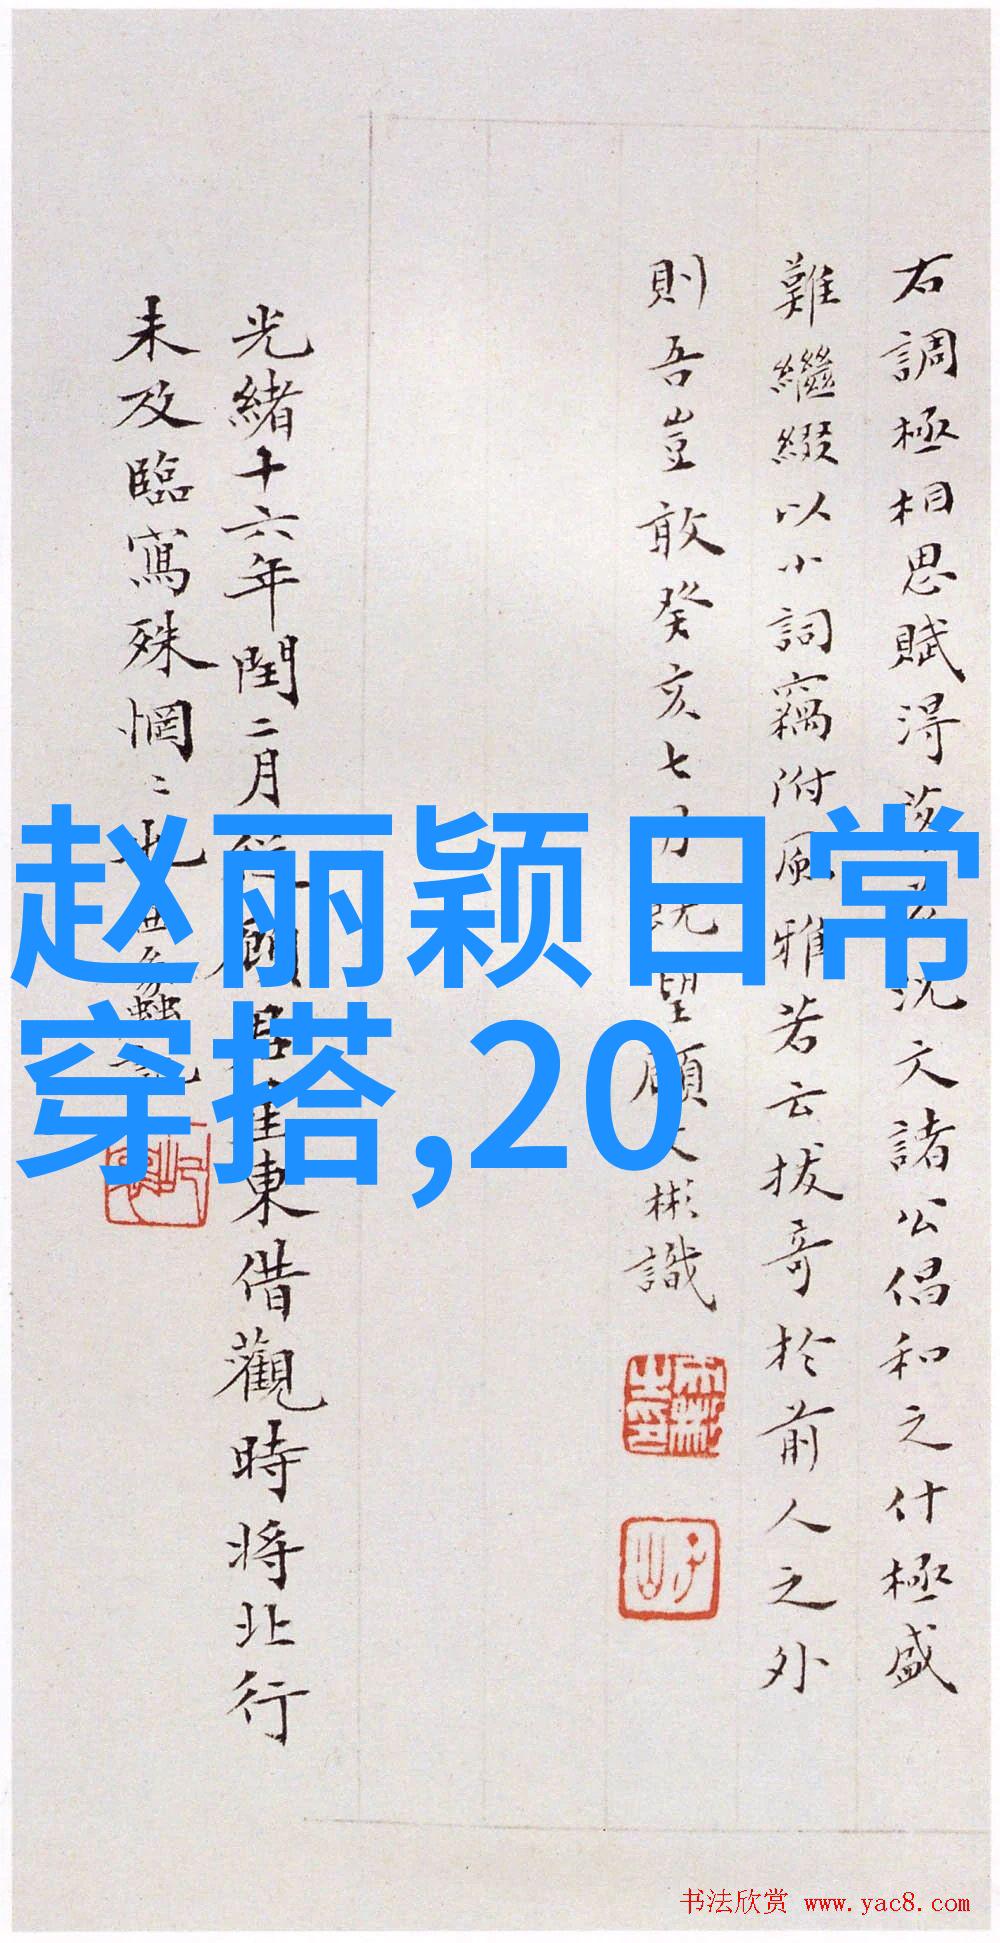 右調極相思賦得沈文諸公倡和之什極盛
難繼綴以小詞竊附風雅若云拔奇於前人之外
則吾豈敢癸亥七月既望顧文彬識
光緒十六年閏二月從顧君重東借觀時將北行
未及臨寫殊惘二也
赵丽颖日常
穿搭,20
书法欣赏 www.yac8.com